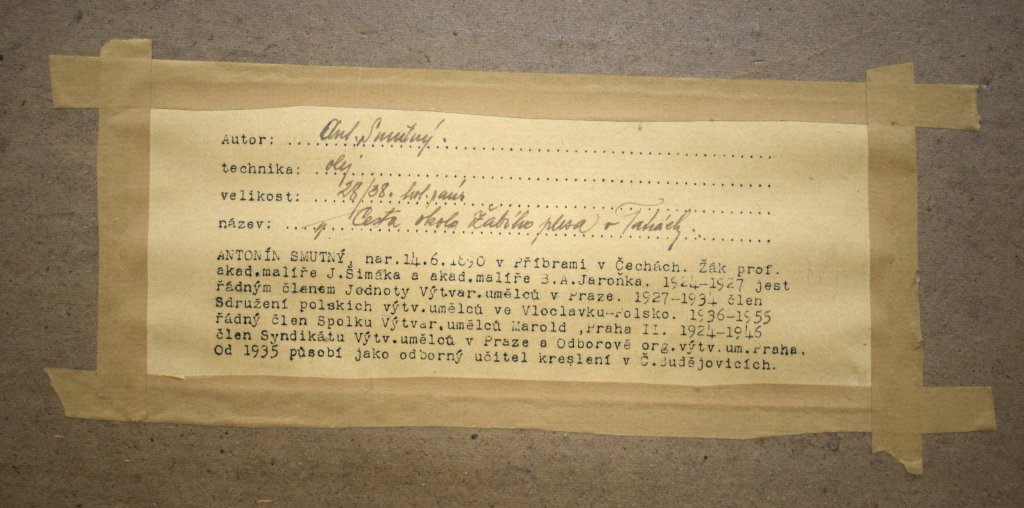 Autor: Ant. Smutný.
technika: olej
velikost: 28/38.
název: "Cesta okolo Žabího plesa v Tatrách".
ANTONÍN SMUTNÝ, nar.14.6.1890 v Příbrami v Čechách. Žák prof.
akad.malíře J.Šimáka a akad.malíře B.A.Jaroňka. 1924-1927 jest
řádným členem Jednoty Výtvar.umělců v Praze. 1927-1934 člen
Sdružení polskich výtv.umělců ve Vloclavku-Polsko. 1936-1955
řádný člen Spolku Výtvar.umělců Marold ,Praha II. 1924-1946
člen Syndikátu Výtv.umělců v Praze a Odborově org.výtv.um.Praha.
Od 1935 působí jako odborný učitel kreslení v Č.Budějovicích.